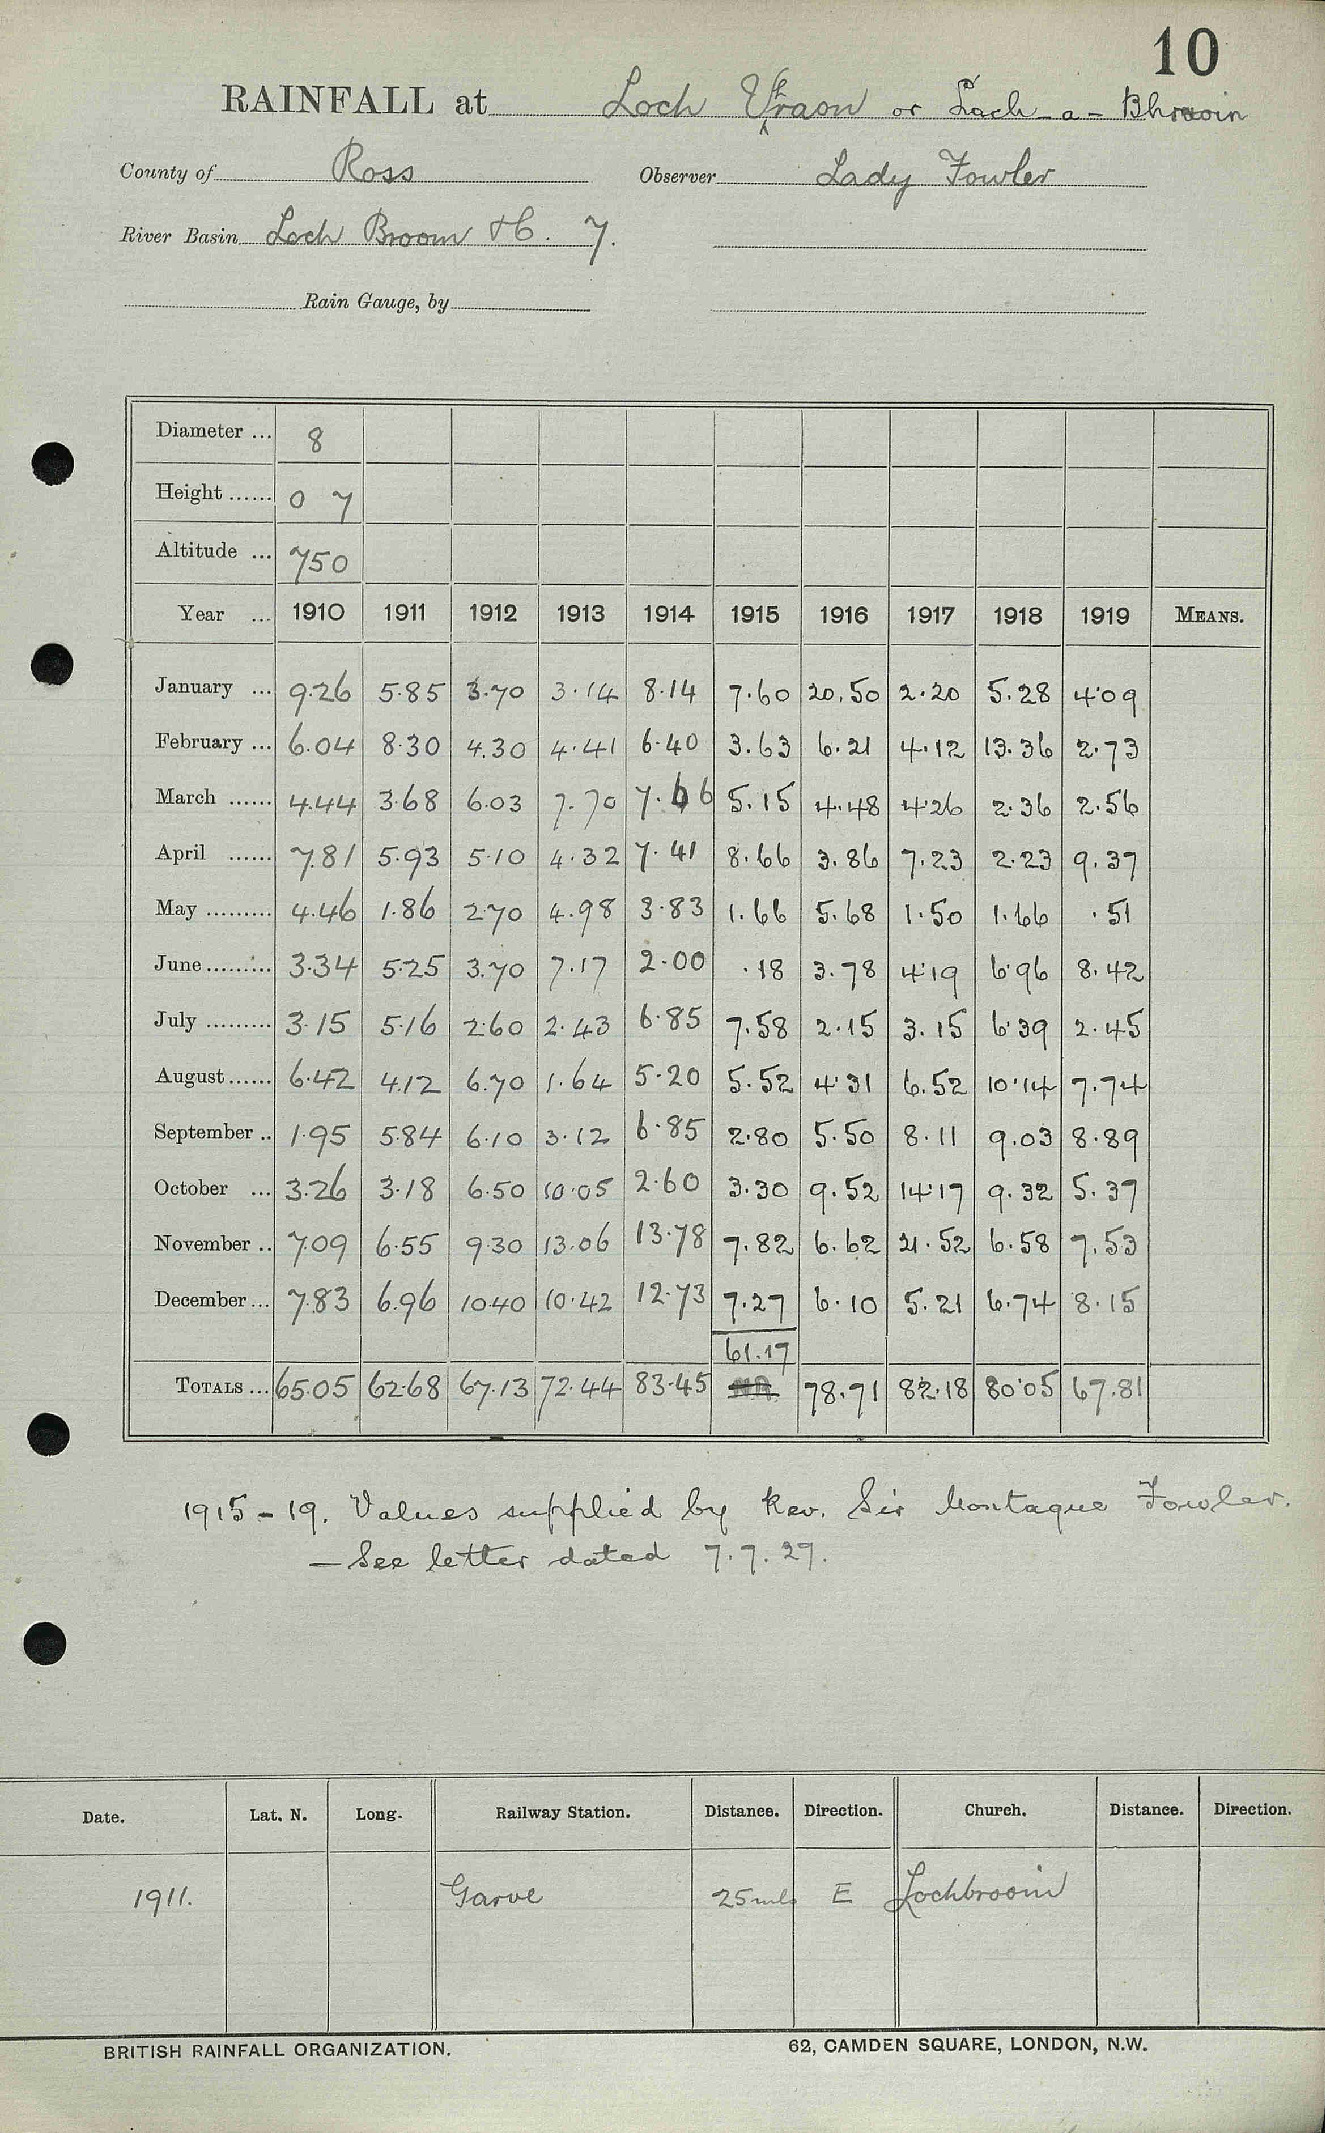 10
RAINFALL at Loch Vraon or Loch-a-Bhraoin
County of Ross Observer Lady Fowler
River Basin Loch Broom &c. 7.
Rain Gauge, by
Diameter ... 8
Height ...... 0 7
Altitude ... 750
Year ... 1910 1911 1912 1913 1914 1915 1916 1917 1918 1919 MEANS.
January ... 9.26 5.85 3.70 3.14 8.14 7.60 20.50 2.20 5.28 4.09
February ... 6.04 8.30 4.30 4.41 6.40 3.63 6.21 4.12 13.36 2.73
March ...... 4.44 3.68 6.03 7.70 7.66 5.15 4.48 4.26 2.36 2.56
April ...... 7.81 5.93 5.10 4.32 7.41 8.66 3.86 7.23 2.23 9.37
May ......... 4.46 1.86 2.70 4.98 3.83 1.66 5.68 1.50 1.66 .51
June ......... 3.34 5.25 3.70 7.17 2.00 .18 3.78 4.19 6.96 8.42
July ......... 3.15 5.16 2.60 2.43 6.85 7.58 2.15 3.15 6.39 2.45
August ...... 6.42 4.12 6.70 1.64 5.20 5.52 4.31 6.52 10.14 7.74
September .. 1.95 5.84 6.10 3.12 6.85 2.80 5.50 8.11 9.03 8.89
October ... 3.26 3.18 6.50 10.05 2.60 3.30 9.52 14.17 9.32 5.37
November .. 7.09 6.55 9.30 13.06 13.78 7.82 6.62 21.52 6.58 7.53
December ... 7.83 6.96 10.40 10.42 12.73 7.27 6.10 5.21 6.74 8.15
61.17
TOTALS ... 65.05 62.68 67.13 72.44 83.45 78.71 82.18 80.05 67.81
1915-19. Values supplied by Rev. Sir Montague Fowler.
— See letter dated 7.7.27.
Date. Lat. N. Long. Railway Station. Distance. Direction. Church. Distance. Direction.
1911. Garve 25 mls E Lochbroom
BRITISH RAINFALL ORGANIZATION. 62, CAMDEN SQUARE, LONDON, N.W.